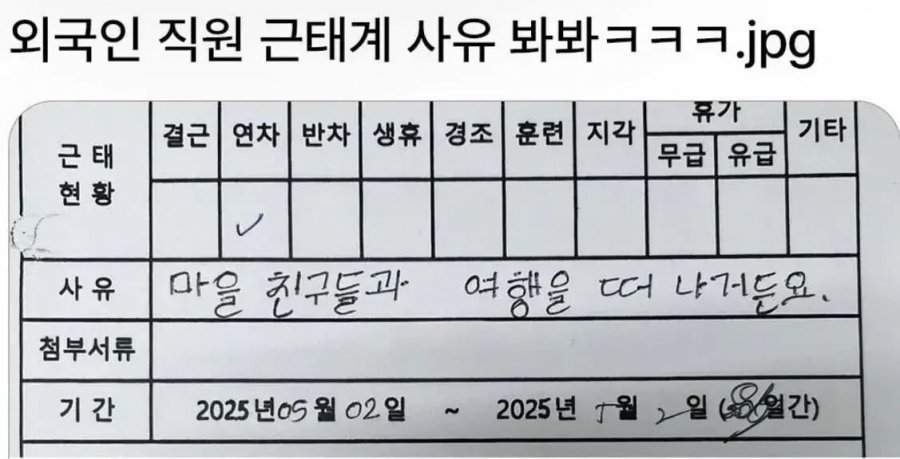 외국인 직원 근태계 사유 봐봐ㅋㅋㅋ.jpg
근태 현황
결근 연차 반차 생휴 경조 훈련 지각 휴가 기타
무급 유급
✓
사유 마을 친구들과 여행을 떠나거든요.
첨부서류
기간 2025년 05월 02일 ~ 2025년 5월 2일 ( 일간)